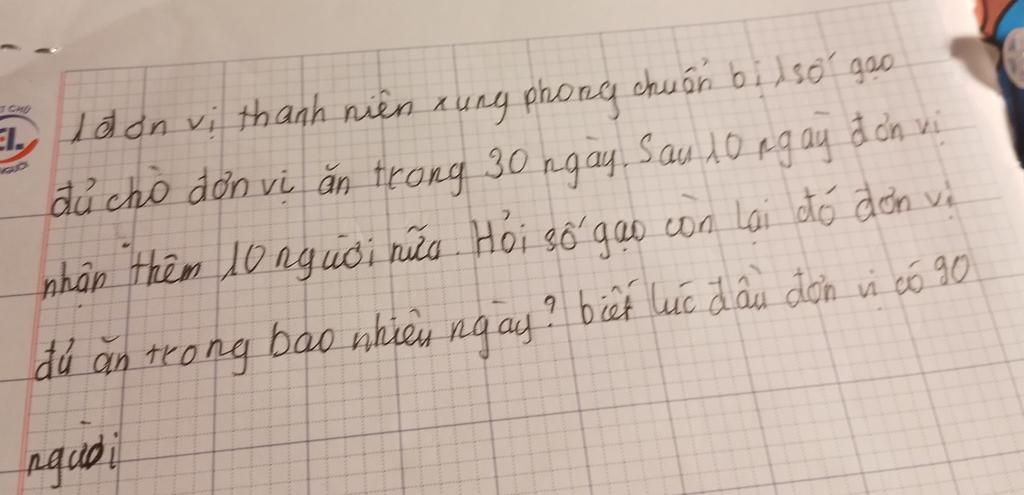 1 đơn vị thanh niên xung phong chuẩn bị 1 số gạo
đủ cho đơn vị ăn trong 30 ngày. Sau 10 ngày đơn vị
nhận thêm 10 người nữa. Hỏi số gạo còn lại đó đơn vị
đủ ăn trong bao nhiêu ngày? biết lúc đầu đơn vị có 90
người